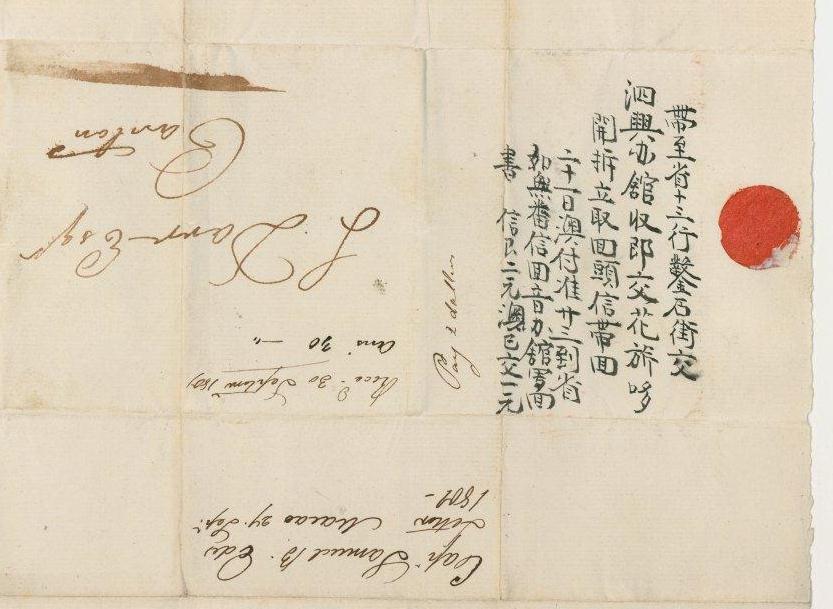 帶至省十三行鑿石街交
泗興办館收即交花旂哆
開拆立取回頭信帶回
二十一日澳付准廿三到省
如無番信回音办館寫回
書 信艮二元澳已交一元
Pay 2 dollars
Esqr
Canton
Recd 30 Septem
Ans 30
Capt Samuel B. Edes
Letter Macao 27 Sep.